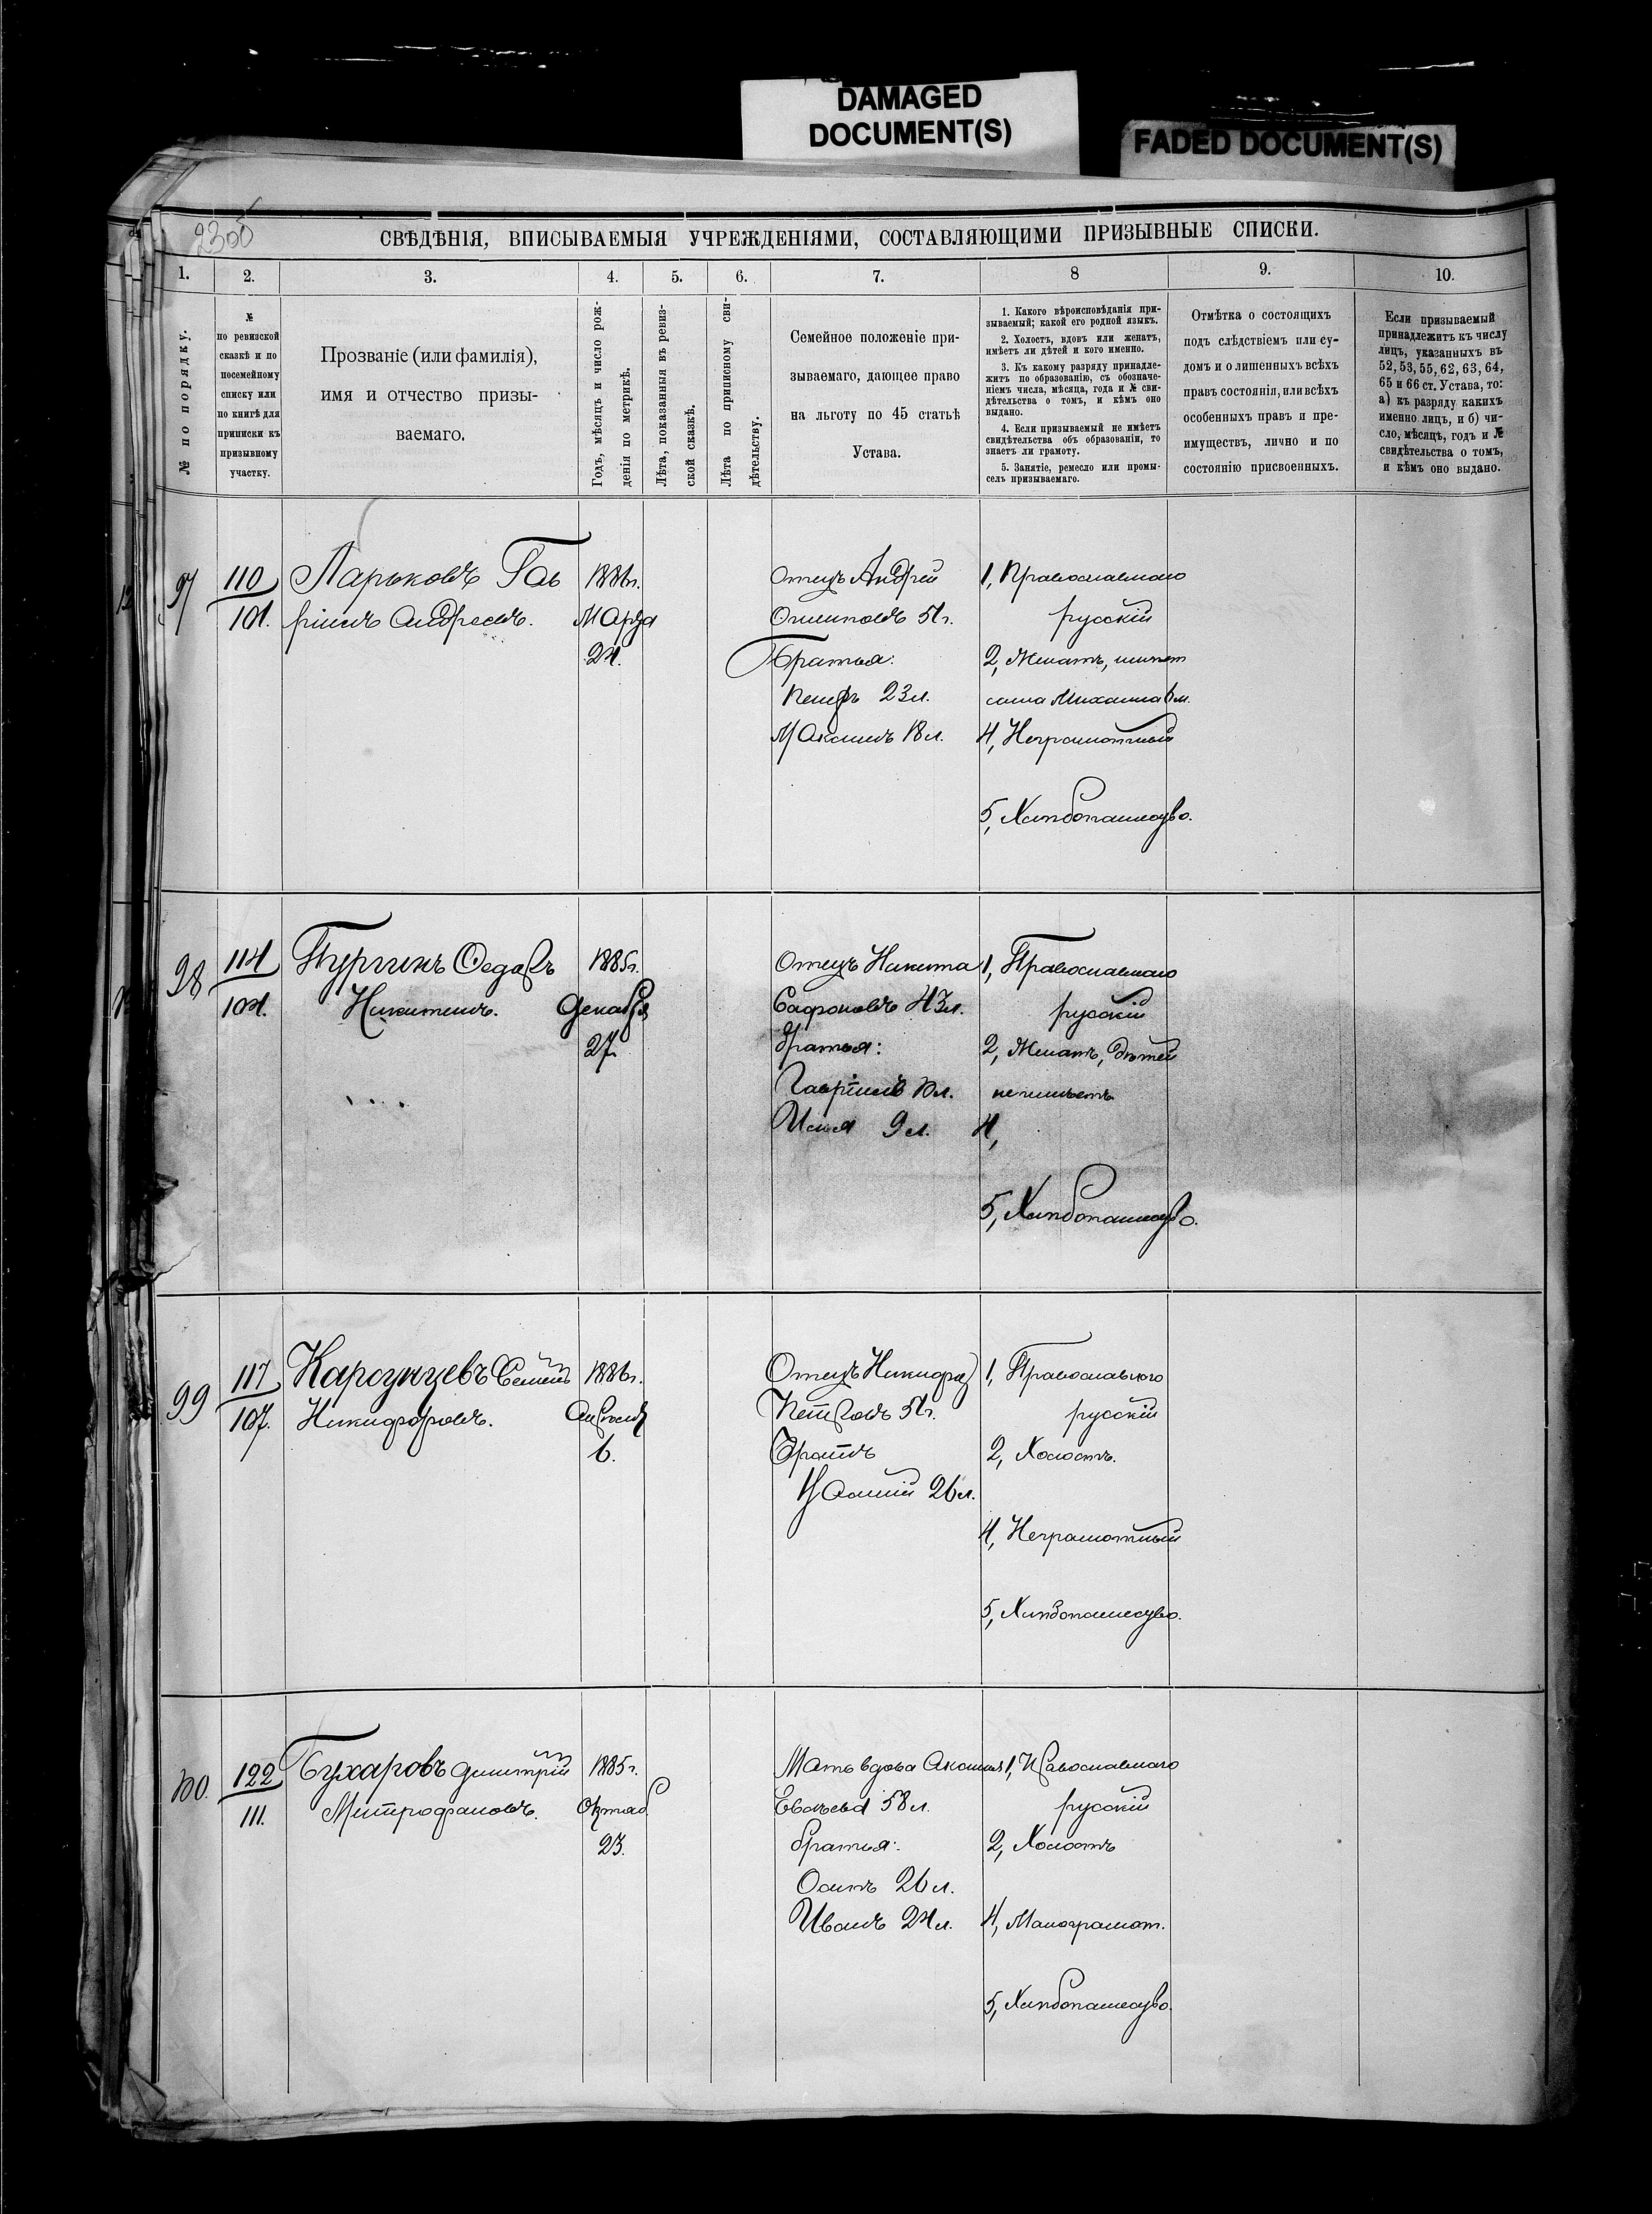 DAMAGED
DOCUMENT(S)
FADED DOCUMENT(S)
2300
СВѢДѢНІЯ, ВПИСЫВАЕМЫЯ УЧРЕЖДЕНІЯМИ, СОСТАВЛЯЮЩИМИ ПРИЗЫВНЫЕ СПИСКИ.
1. 2. 3. 4. 5. 6. 7. 8 9. 10.
№ по порядку.
№
по ревизской
сказкѣ и по
посемейному
списку или
по книгѣ для
приписки къ
призывному
участку.
Прозваніе (или фамилія),
имя и отчество призы-
ваемаго.
Годъ, мѣсяцъ и число рож-
денія по метрикѣ.
Лѣта, показанныя въ ревиз-
ской сказкѣ.
Лѣта по приписному сви-
дѣтельству.
Семейное положеніе при-
зываемаго, дающее право
на льготу по 45 статьѣ
Устава.
1. Какого вѣроисповѣданія при-
зываемый; какой его родной языкъ.
2. Холостъ, вдовъ или женатъ,
имѣетъ ли дѣтей и кого именно.
3. Къ какому разряду принадле-
житъ по образованію, съ обозначе-
ніемъ числа, мѣсяца, года и № сви-
дѣтельства о томъ, и кѣмъ оно
выдано.
4. Если призываемый не имѣетъ
свидѣтельства объ образованіи, то
знаетъ ли грамоту.
5. Занятіе, ремесло или промы-
селъ призываемаго.
Отмѣтка о состоящихъ
подъ слѣдствіемъ или су-
домъ и о лишенныхъ всѣхъ
правъ состоянія, или всѣхъ
особенныхъ правъ и пре-
имуществъ, лично и по
состоянію присвоенныхъ.
Если призываемый
принадлежитъ къ числу
лицъ, указанныхъ въ
52, 53, 55, 62, 63, 64,
65 и 66 ст. Устава, то:
а) къ разряду какихъ
именно лицъ, и б) чи-
сло, мѣсяцъ, годъ и №
свидѣтельства о томъ,
и кѣмъ оно выдано.
97
110
101.
Ларьковъ Гав
ріилъ Андреевъ.
1886г.
Марта
24.
Отецъ Андрей
51г.
Братья:
23л.
Максимъ 18л.
1, Православнаго
русскій
2, Женатъ, имѣет
сына Михаила 6м.
4, Неграмотный
5, Хлѣбопашество.
98
114
104.
Ѳедоръ
Никитинъ.
1885г.
Декабря
27.
Отецъ Никита
Сафоновъ 43л.
братья:
Гавріилъ 10л.
Илья 9л.
1, Православнаго
русскій
2, Женатъ, дѣтей
неимѣетъ
4,
5, Хлѣбопашество.
99
117
107.
Семенъ
Никифоровъ.
1886г.
6.
Отецъ Никифоръ
Петровъ 51г.
Братъ
26л.
1, Православнаго
русскій
2, Холостъ.
4, Неграмотный
5, Хлѣбопашество.
100.
122
111.
Бухаровъ Димитрій
Митрофановъ.
1885г.
Октяб.
23.
Мать вдова
58л.
братья:
Осипъ 26л.
Иванъ 24л.
1, Православнаго
русскій
2, Холостъ
4, Малограмот.
5, Хлѣбопашество.